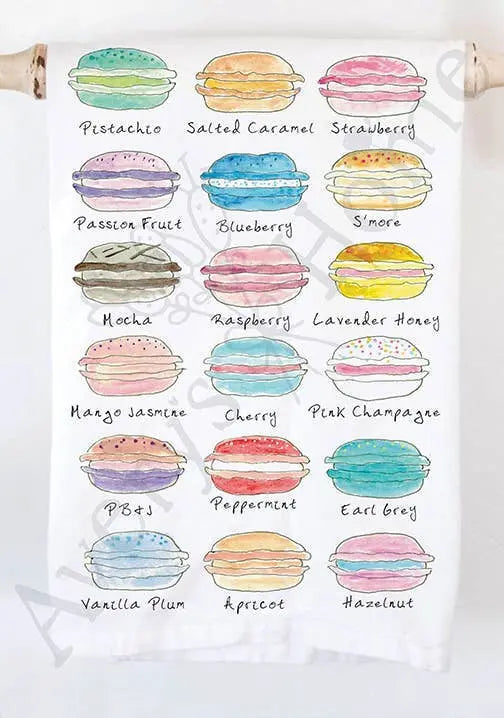 Pistachio Salted Caramel Strawberry
Passion Fruit Blueberry S'more
Mocha Raspberry Lavender Honey
Mango Jasmine Cherry Pink Champagne
PB&J Peppermint Earl Grey
Vanilla Plum Apricot Hazelnut
Avery's Home